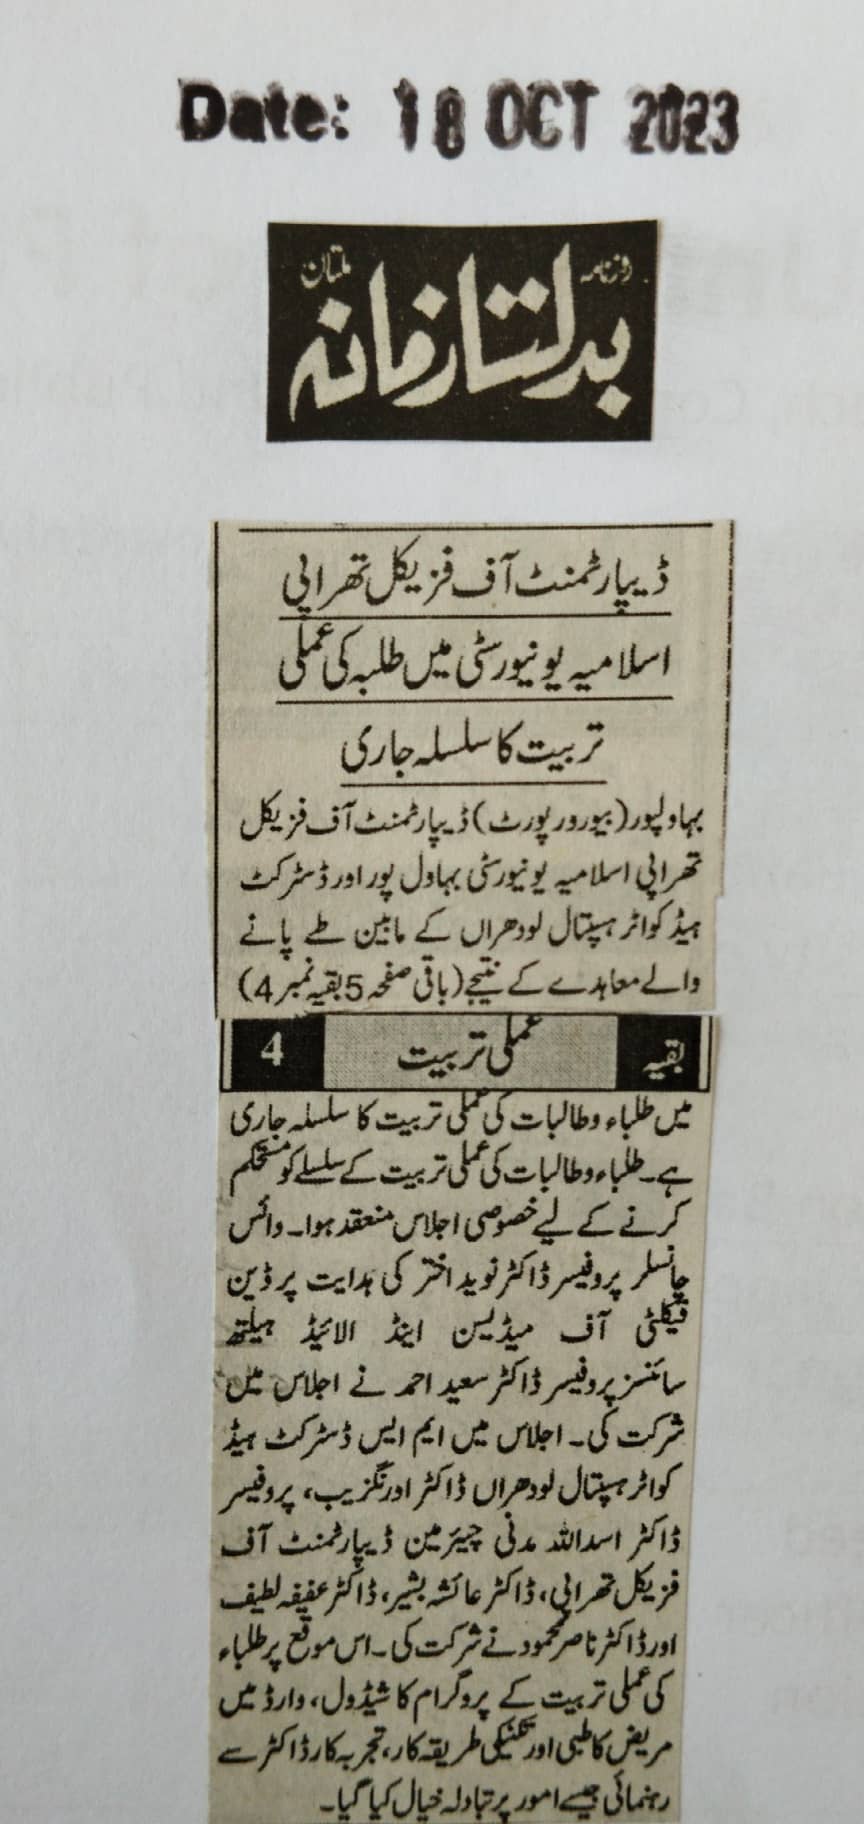 Date: 18 OCT 2023
روزنامہ
ملتان
بدلتا زمانہ
ڈیپارٹمنٹ آف فزیکل تھراپی
اسلامیہ یونیورسٹی میں طلبہ کی عملی
تربیت کا سلسلہ جاری
بہاولپور (بیورورپورٹ) ڈیپارٹمنٹ آف فزیکل
تھراپی اسلامیہ یونیورسٹی بہاول پور اور ڈسٹرکٹ
ہیڈ کواٹر ہسپتال لودھراں کے مابین طے پانے
والے معاہدے کے نتیجے (باقی صفحہ 5 بقیہ نمبر 4)
بقیہ عملی تربیت 4
میں طلباء وطالبات کی عملی تربیت کا سلسلہ جاری
ہے۔ طلباء وطالبات کی عملی تربیت کے سلسلے کو مستحکم
کرنے کے لیے خصوصی اجلاس منعقد ہوا۔ وائس
چانسلر پروفیسر ڈاکٹر نوید اختر کی ہدایت پر ڈین
فیکلٹی آف میڈیسن اینڈ الائیڈ ہیلتھ
سائنسز پروفیسر ڈاکٹر سعید احمد نے اجلاس میں
شرکت کی۔ اجلاس میں ایم ایس ڈسٹرکٹ ہیڈ
کواٹر ہسپتال لودھراں ڈاکٹر اورنگزیب، پروفیسر
ڈاکٹر اسد اللہ مدنی چیئرمین ڈیپارٹمنٹ آف
فزیکل تھراپی، ڈاکٹر عائشہ بشیر، ڈاکٹر عفیفہ لطیف
اور ڈاکٹر ناصر محمود نے شرکت کی۔ اس موقع پر طلباء
کی عملی تربیت کے پروگرام کا شیڈول، وارڈ میں
مریض کا طبی اور تکنیکی طریقہ کار، تجربہ کار ڈاکٹر سے
رہنمائی جیسے امور پر تبادلہ خیال کیا گیا۔